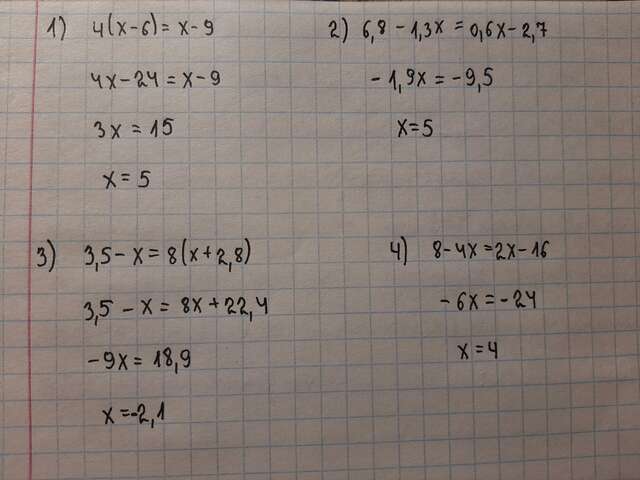 1) 4(x-6)=x-9
4x-24=x-9
3x=15
x=5
2) 6,8-1,3x=0,6x-2,7
-1,9x=-9,5
x=5
3) 3,5-x=8(x+2,8)
3,5-x=8x+22,4
-9x=18,9
x=-2,1
4) 8-4x=2x-16
-6x=-24
x=4